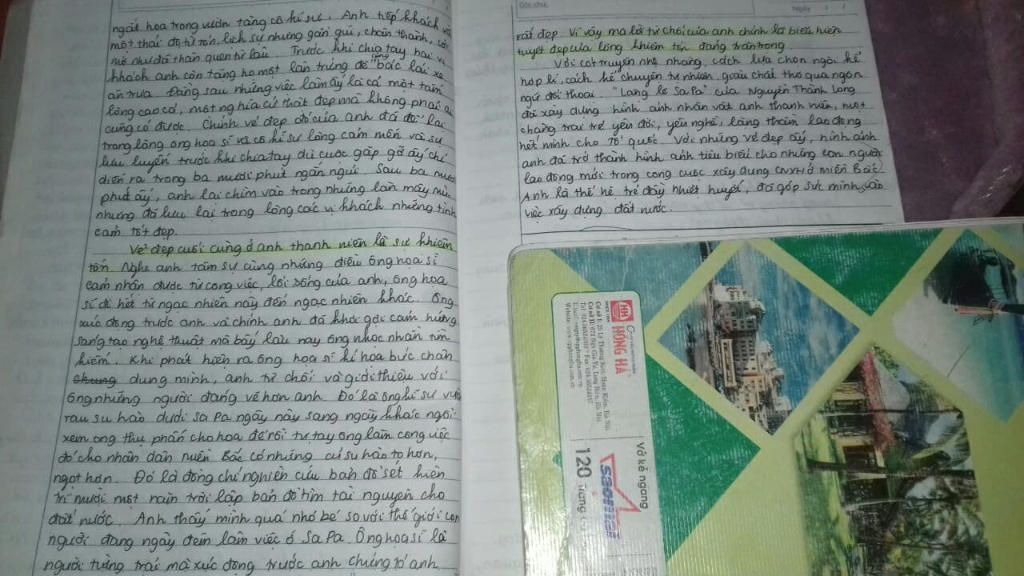 ngắt hoa trong vườn tặng cô kĩ sư. Anh tiếp khách với
một thái độ từ tốn, lịch sự nhưng gần gũi, chân thành, cởi
mở như đã thân quen từ lâu. Trước khi chia tay hai vị
khách anh còn tặng họ một làn trứng để bác lái xe
ăn trưa. Đằng sau những việc làm ấy là cả một tấm
lòng cao cả, một nghĩa cử thật đẹp mà không phải ai
cũng có được. Chính vẻ đẹp đó của anh đã để lại
trong lòng ông họa sĩ và cô kĩ sư lòng cảm mến và sự
lưu luyến trước khi chia tay dù cuộc gặp gỡ ấy chỉ
diễn ra trong ba mươi phút ngắn ngủi. Sau ba mươi
phút ấy, anh lại chìm vào trong những làn mây mù
nhưng đã lưu lại trong lòng các vị khách những tình
cảm tốt đẹp.
Vẻ đẹp cuối cùng ở anh thanh niên là sự khiêm
tốn. Nghe anh tâm sự cùng những điều ông họa sĩ
cảm nhận được từ công việc, lối sống của anh, ông họa
sĩ đi hết từ ngạc nhiên này đến ngạc nhiên khác. Ông
xúc động trước anh và chính anh đã khơi gợi cảm hứng
sáng tạo nghệ thuật mà bấy lâu nay ông nhọc nhằn tìm
kiếm. Khi phát hiện ra ông họa sĩ kí họa bức chân
chung dung mình, anh từ chối và giới thiệu với
ông những người đáng vẽ hơn anh. Đó là ông kĩ sư vườn
rau su hào dưới Sa Pa ngày này sang ngày khác ngồi
xem ong thụ phấn cho hoa để rồi tự tay ông làm công việc
đó cho nhân dân miền Bắc có những củ su hào to hơn,
ngọt hơn. Đó là đồng chí nghiên cứu bản đồ sét hiện
trì mười một năm trời lập bản đồ tìm tài nguyên cho
đất nước. Anh thấy mình quá nhỏ bé so với thế giới con
người đang ngày đêm làm việc ở Sa Pa. Ông họa sĩ là
người từng trải mà xúc động trước anh chứng tỏ anh
Ghi chú:
Ngày
rất đẹp. Vì vậy mà lời từ chối của anh chính là biểu hiện
tuyệt đẹp của lòng khiêm tốn đáng trân trọng.
Với cốt truyện nhẹ nhàng, cách lựa chọn ngôi kể
hợp lí, cách kể chuyện tự nhiên, giàu chất thơ qua ngôn
ngữ đối thoại. "Lặng lẽ Sa Pa" của Nguyễn Thành Long
đã xây dựng hình ảnh nhân vật anh thanh niên, một
chàng trai trẻ yêu đời, yêu nghề, lặng thầm lao động
hết mình cho Tổ quốc. Với những vẻ đẹp ấy, hình ảnh
anh đã trở thành hình ảnh tiêu biểu cho những con người
lao động mới trong công cuộc xây dựng CNXH ở miền Bắc.
Anh là thế hệ trẻ đầy nhiệt huyết, đã góp sức mình vào
việc xây dựng đất nước.
HỒNG HÀ
Vở kẻ ngang
120 trang